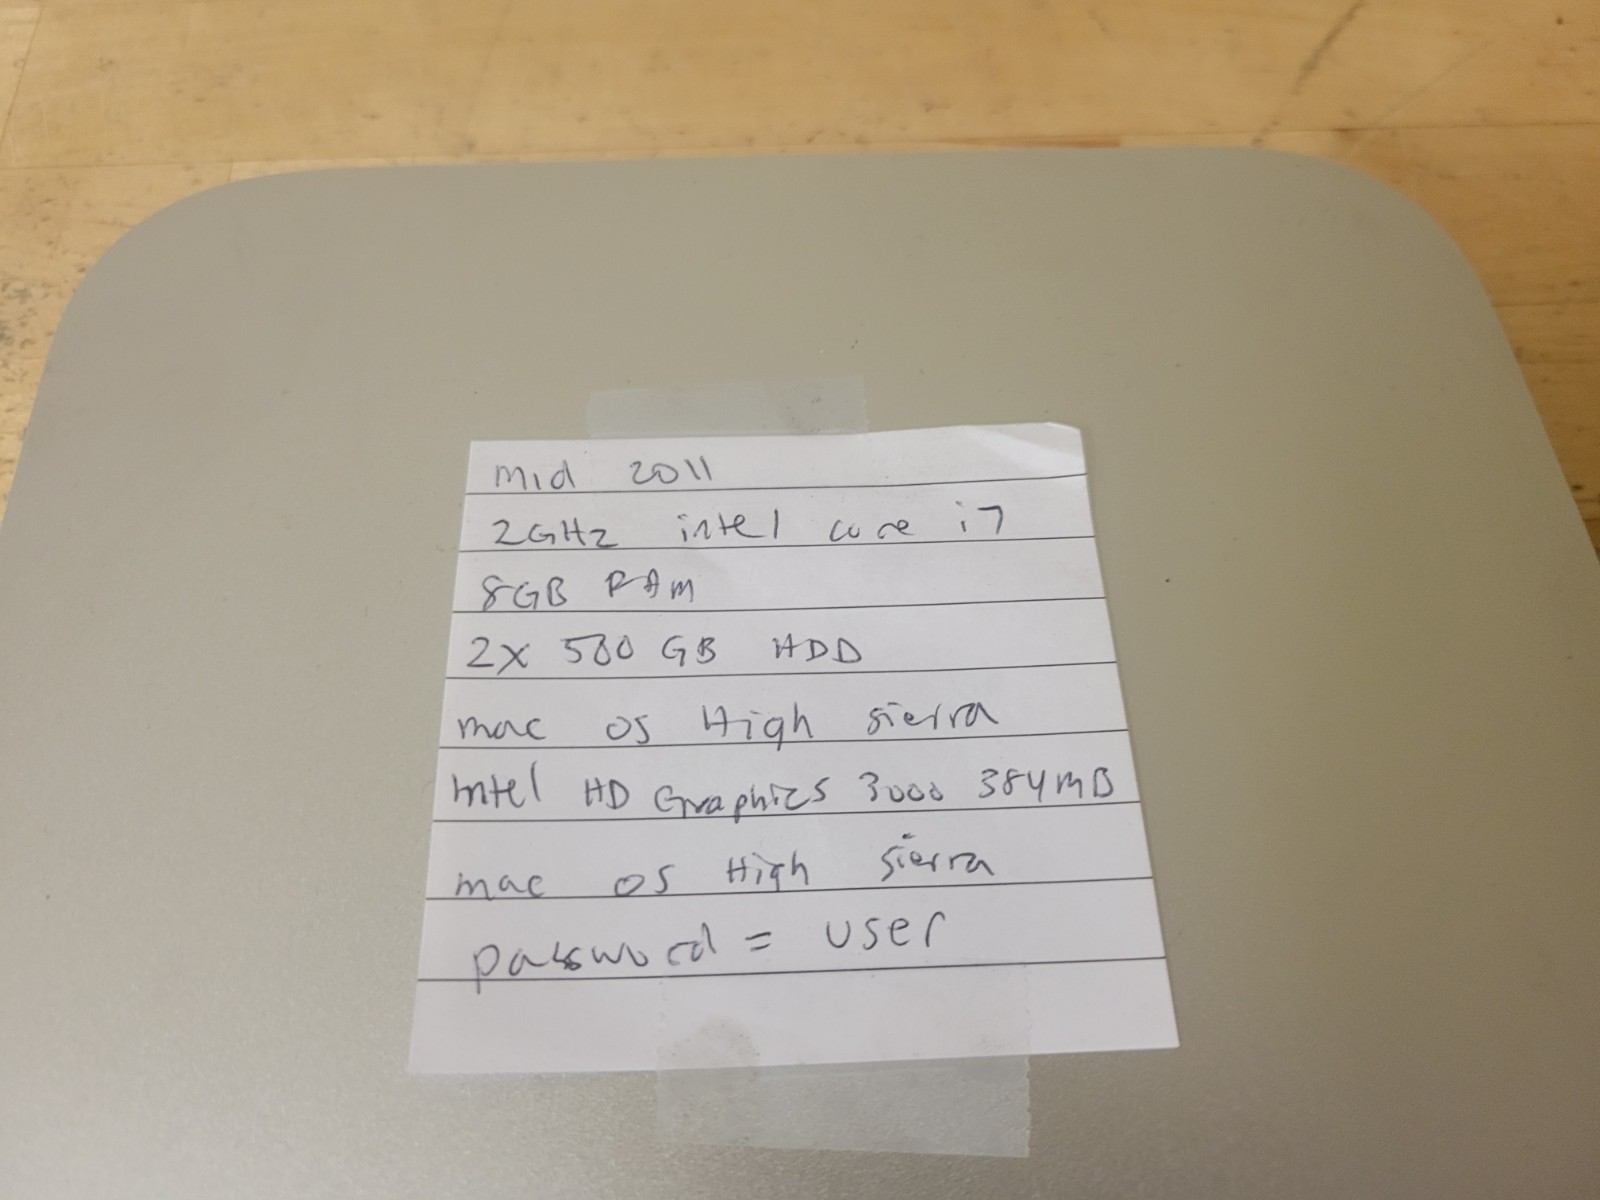 Mid 2011
2GHz intel core i7
8GB RAM
2x 500 GB HDD
mac os High sierra
Intel HD Graphics 3000 384MB
mac os High sierra
password = user